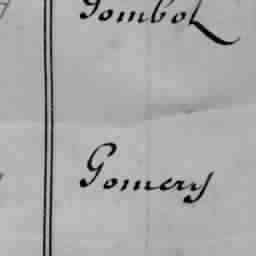 Gombot
Gomery